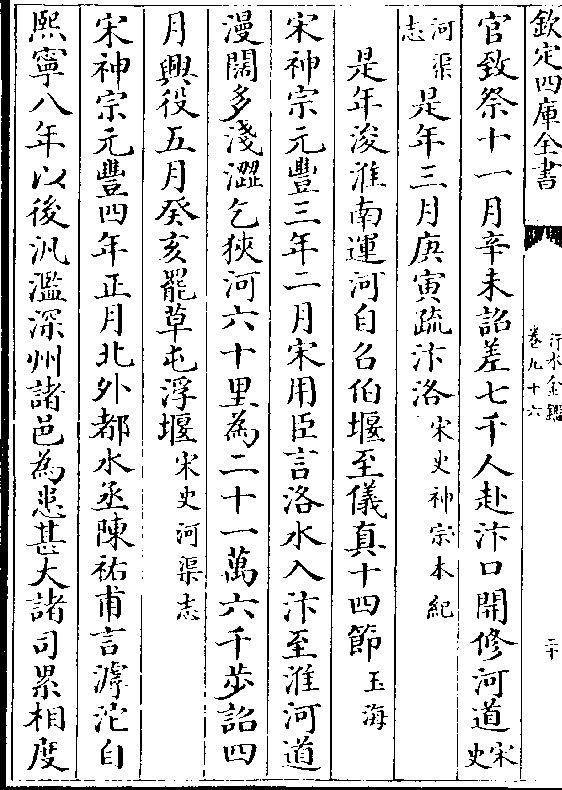 欽定四庫全書
行水金鑑
卷九十六
二十
官致祭十一月辛未詔差七千人赴汴口開修河道宋史
河渠志是年三月庚寅疏汴洛宋史神宗本紀
是年浚淮南運河自召伯堰至儀真十四節玉海
宋神宗元豐三年二月宋用臣言洛水入汴至淮河道
漫闊多淺澀乞狹河六十里為二十一萬六千步詔四
月興役五月癸亥罷草屯浮堰宋史河渠志
宋神宗元豐四年正月北外都水丞陳祐甫言滹沱自
熙寧八年以後汎濫深州諸邑為患甚大諸司累相度